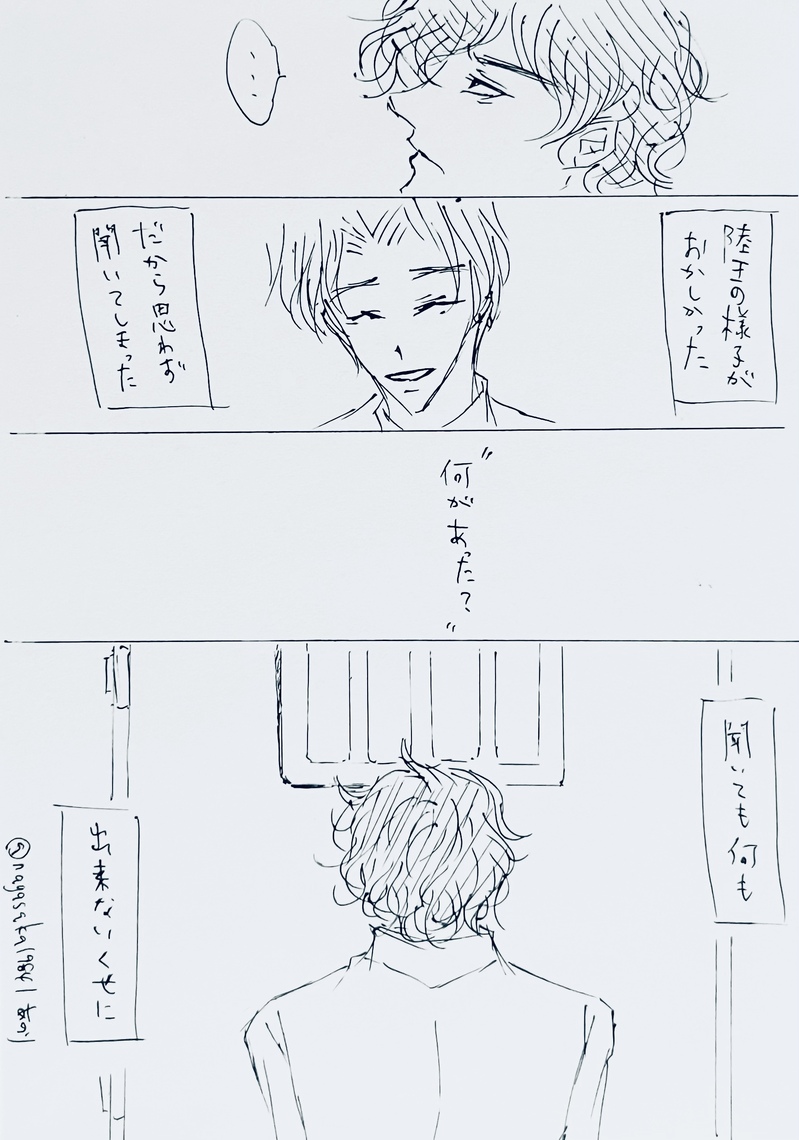 …
陸王の様子が
おかしかった
だから思わず
聞いてしまった
"何があった?"
聞いても何も
出来ないくせに